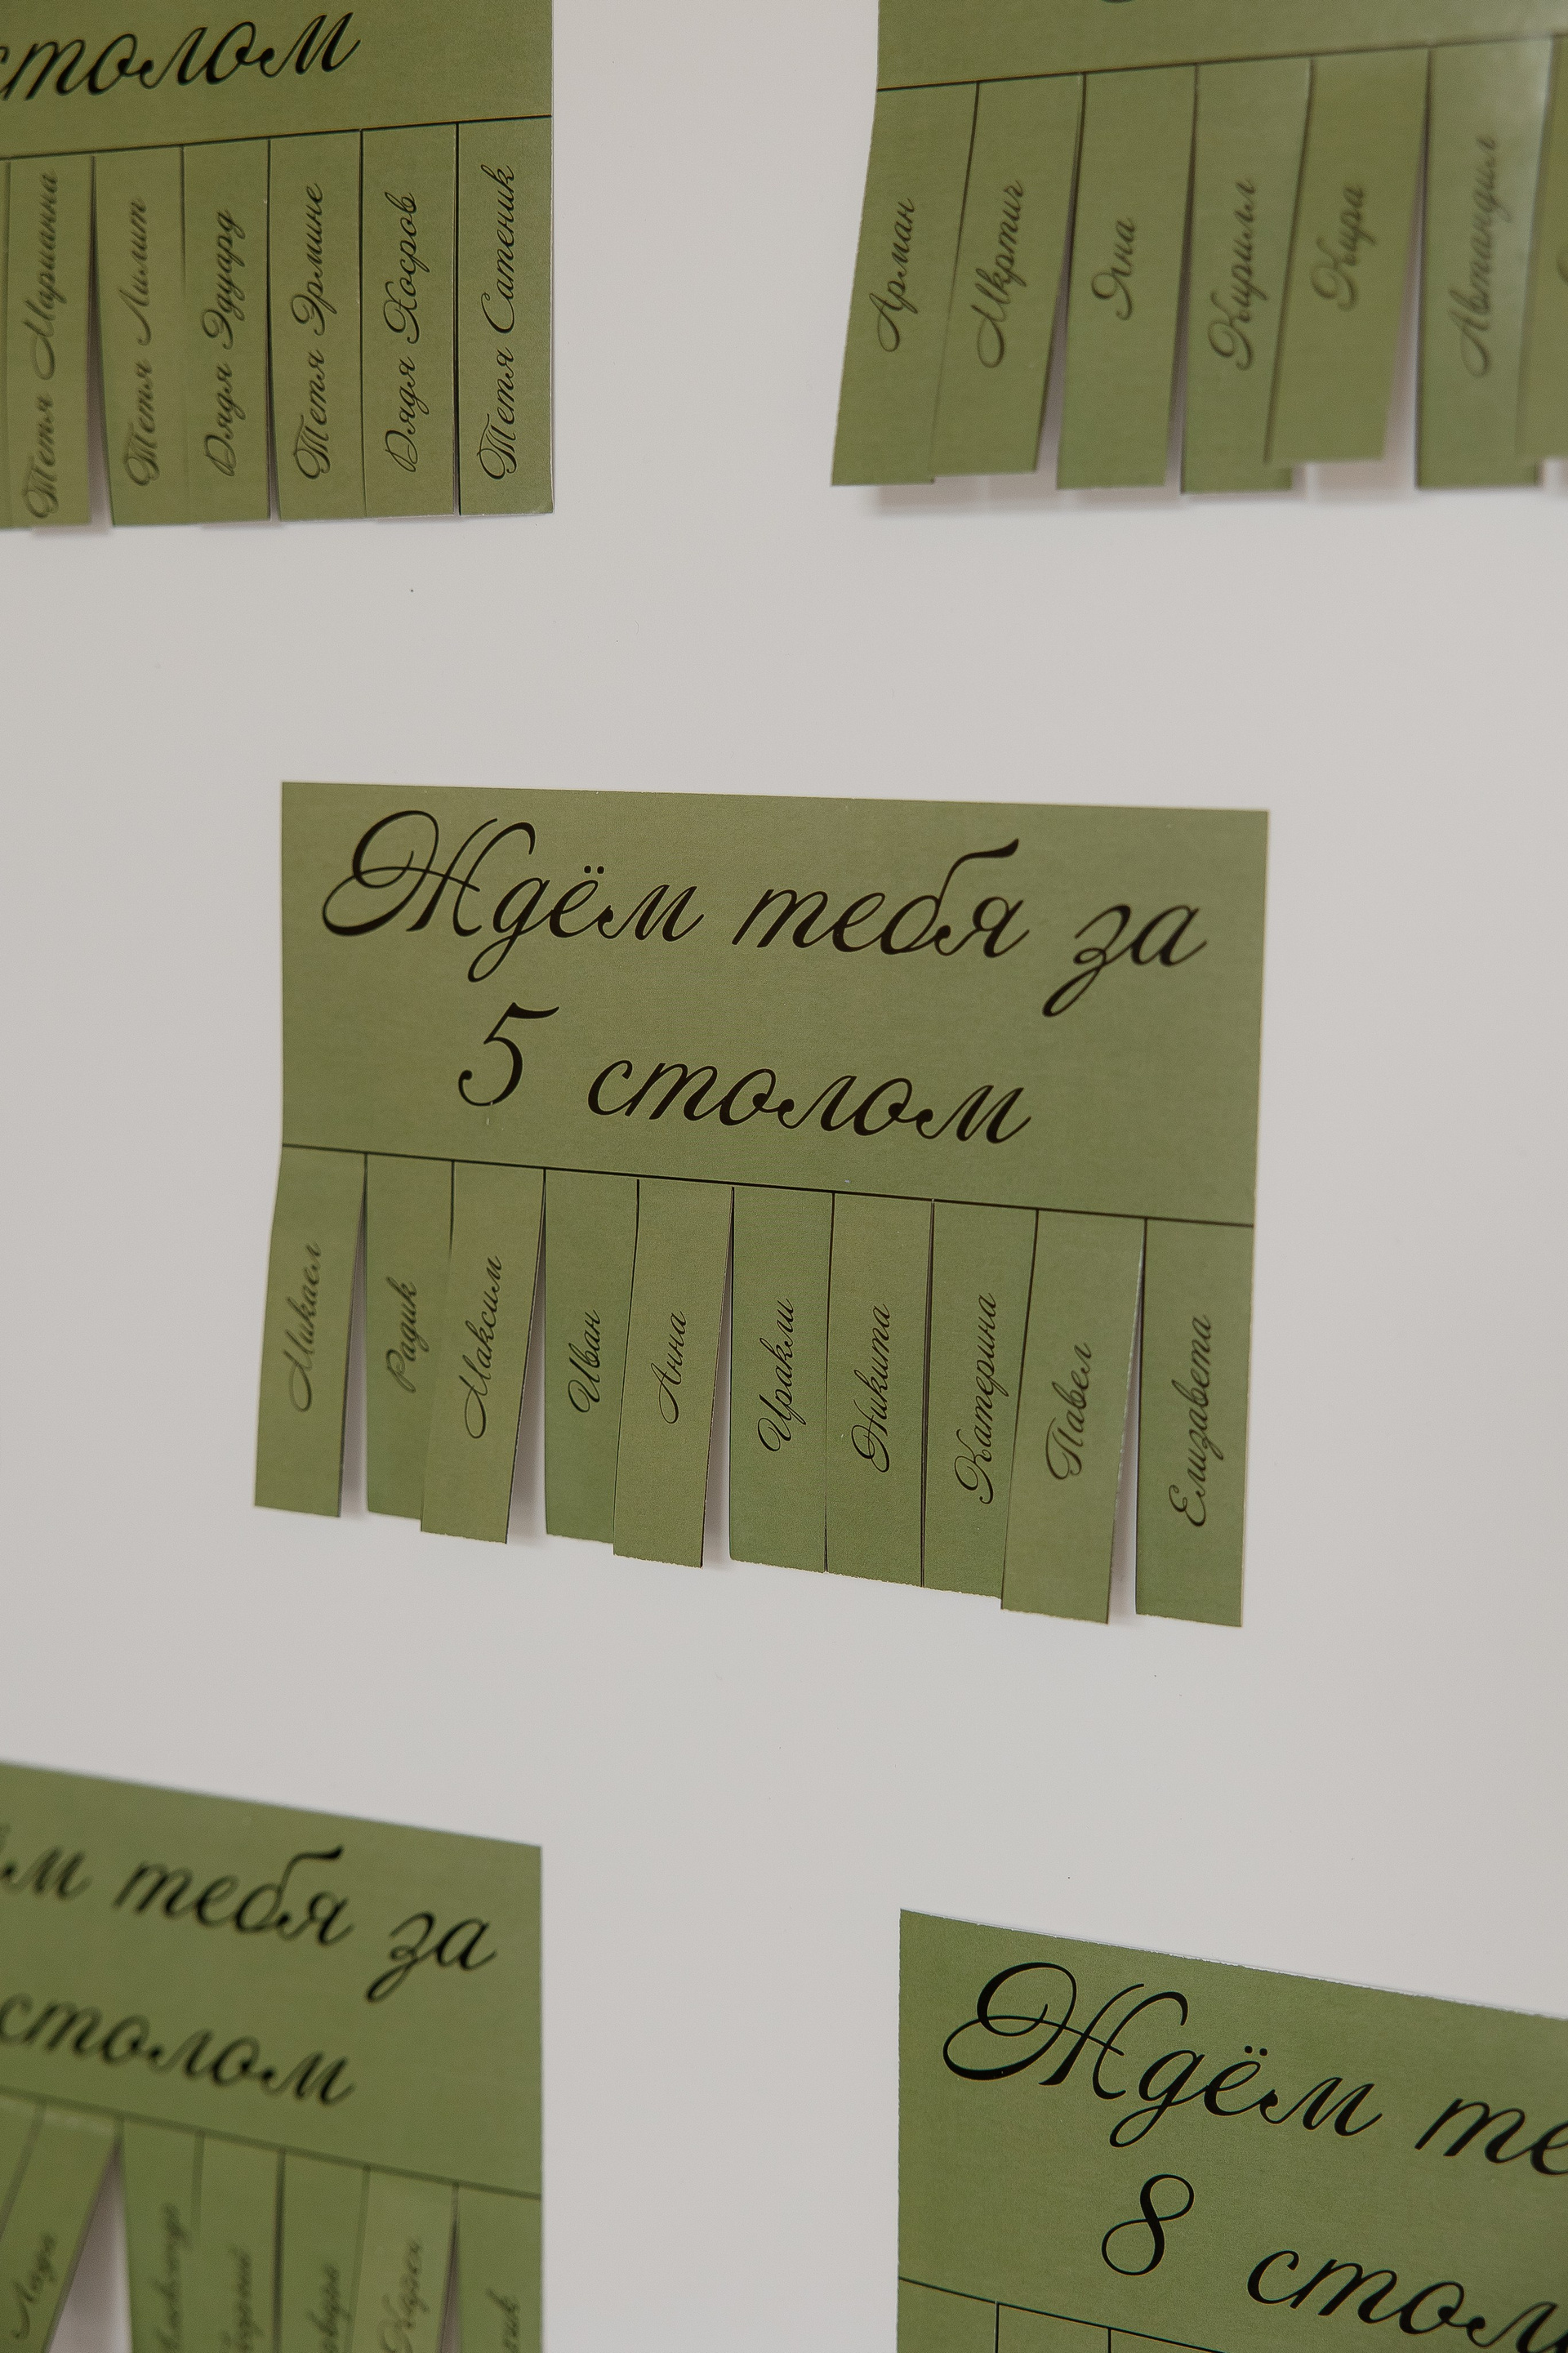 столом
Тетя Марианна
Тетя Лилит
Дядя Эдуард
Тетя Эрмине
Дядя Хосров
Тетя Сатеник
Арман
Мкртич
Яна
Кирилл
Кира
Автандил
Ждём тебя за
5 столом
Микаел
Радик
Максим
Иван
Анна
Иракли
Никита
Катерина
Павел
Елизавета
тебя за
столом
Ждём
8